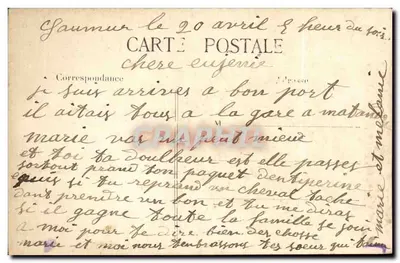 Saumur le 20 avril 5 heur du soir
CARTE POSTALE
chere eugenie
Correspondance
je suis arrives a bon port
il aitais tous a la gare a matandre
marie vas
mieux
et toi ta doulheur est elle passes
sortout prand son paquet dentiperine
puis si tu reprend un cheval tache
dant prendre un bon et tu me diras
si il gagne toute la famille se join
a moi pour te dire bien des chosse
marie et moi nous tenbrassons tes soeur qui taime
marie et melanie